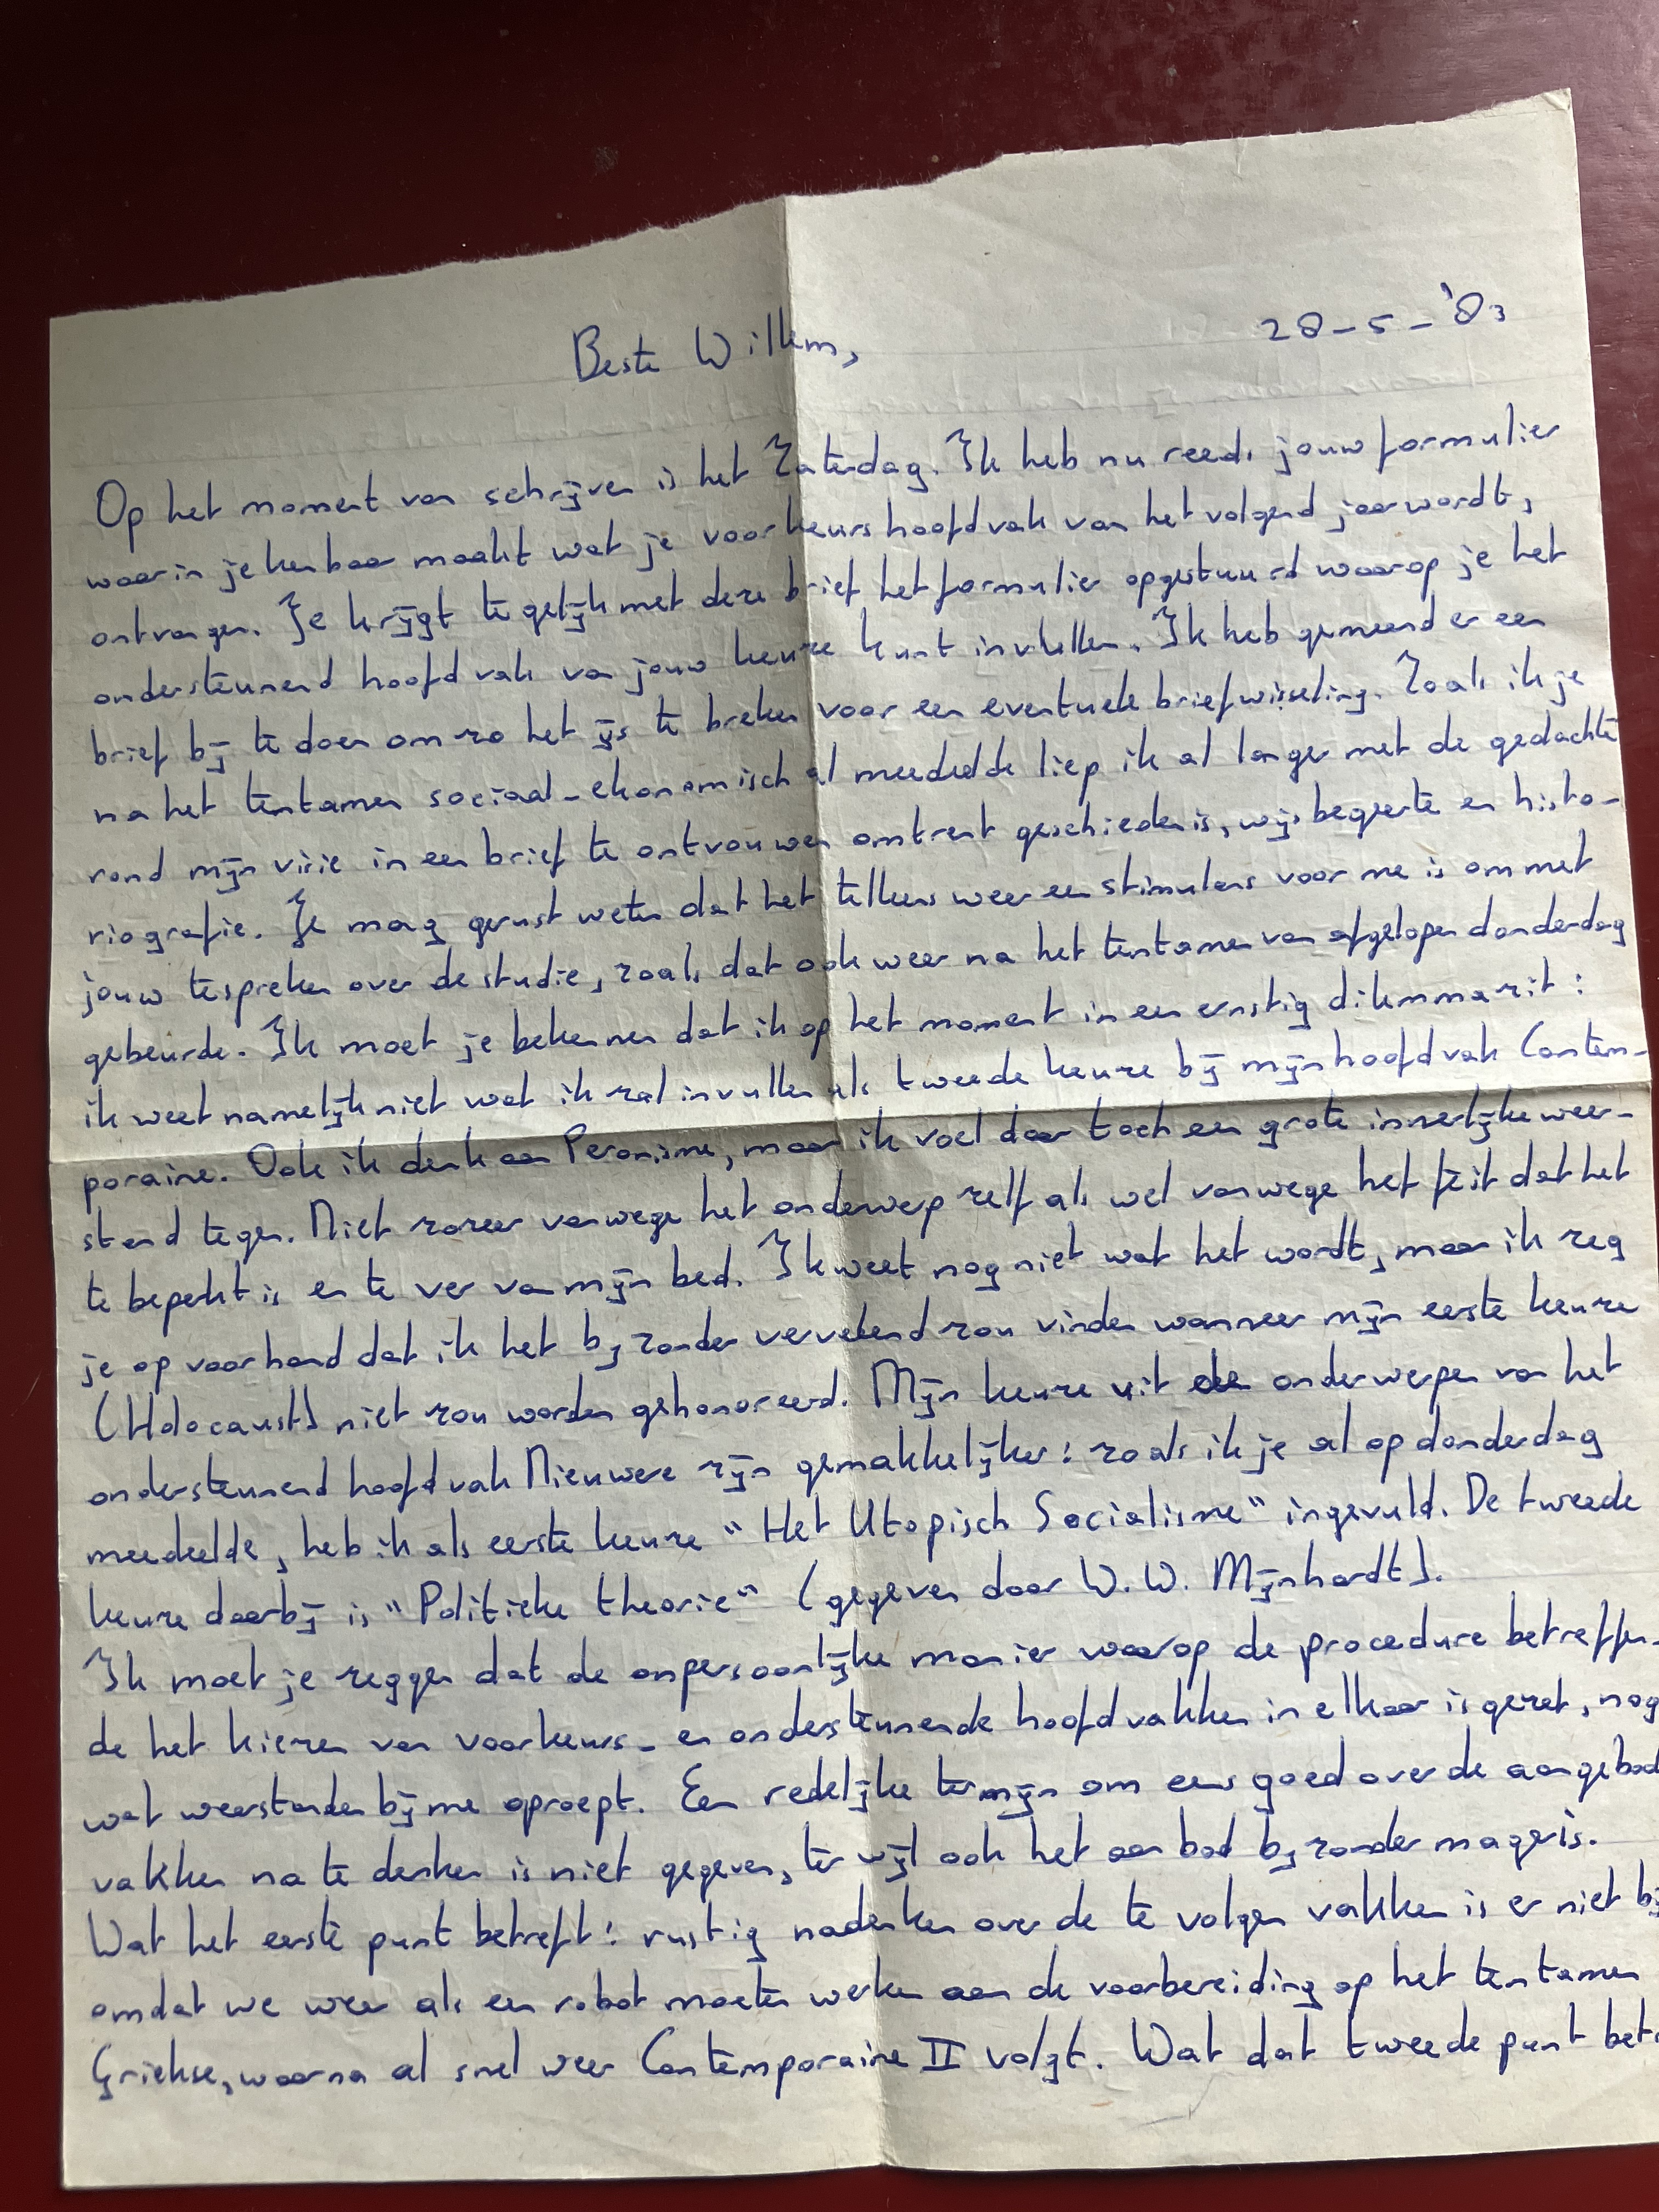 28-5-'83
Beste Willem,
Op het moment van schrijven is het Zaterdag. Ik heb nu reeds jouw formulier
waarin je kenbaar maakt wat je voorkeurshoofdvak van het volgend jaar wordt,
ontvangen. Je krijgt tegelijk met deze brief het formulier opgestuurd waarop je het
ondersteunend hoofdvak van jouw keuze kunt invullen. Ik heb gemeend er een
brief bij te doen om zo het ijs te breken voor een eventuele briefwisseling. Zoals ik je
na het tentamen sociaal-ekonomisch al meedeelde liep ik al langer met de gedachte
rond mijn visie in een brief te ontvouwen omtrent geschiedenis, wijsbegeerte en histo-
riografie. Je mag gerust weten dat het telkens weer een stimulans voor me is om met
jouw te spreken over de studie, zoals dat ook weer na het tentamen van afgelopen donderdag
gebeurde. Ik moet je bekennen dat ik op het moment in een ernstig dilemma zit:
ik weet namelijk niet wat ik zal invullen als tweede keuze bij mijn hoofdvak Contem-
poraine. Ook ik denk aan Peronisme, maar ik voel daar toch een grote innerlijke weer-
stand tegen. Niet zozeer vanwege het onderwerp zelf als wel vanwege het feit dat het
te beperkt is en te ver van mijn bed. Ik weet nog niet wat het wordt, maar ik zeg
je op voorhand dat ik het bijzonder vervelend zou vinden wanneer mijn eerste keuze
(Holocaust) niet zou worden gehonoreerd. Mijn keuze uit de onderwerpen van het
ondersteunend hoofdvak Nieuwere zijn gemakkelijker: zoals ik je al op donderdag
meedeelde, heb ik als eerste keuze "Het Utopisch Socialisme" ingevuld. De tweede
keuze daarbij is "Politieke theorie" (gegeven door W.W. Mijnhardt).
Ik moet je zeggen dat de onpersoonlijke manier waarop de procedure betreffen-
de het kiezen van voorkeurs- en ondersteunende hoofdvakken in elkaar is gezet, nog
wat weerstanden bij me oproept. Een redelijke termijn om eens goed over de aangebod
vakken na te denken is niet gegeven, terwijl ook het aanbod bijzonder mager is.
Wat het eerste punt betreft: rustig nadenken over de te volgen vakken is er niet bij
omdat we weer als een robot moeten werken aan de voorbereiding op het tentamen
Griekse, waarna al snel weer Contemporaine II volgt. Wat dat tweede punt betr